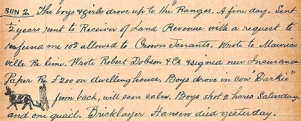 SUN 2 The boys & girls drove up to the Ranges. A fine day. Sent
½ years rent to Receiver of Land Revenue with a request to
refund me 10% allowed to Crown Tenants. Wrote to Maurice
ville Re lime. Wrote Robert Dobson & Co & signed new Insurance
Paper Re £200 on dwellinghouse. Boys drove in cow "Darkie"
from back, will soon calve. Boys shot 2 hares Saturday
and one quail. Bricklayer Hansen died yesterday.